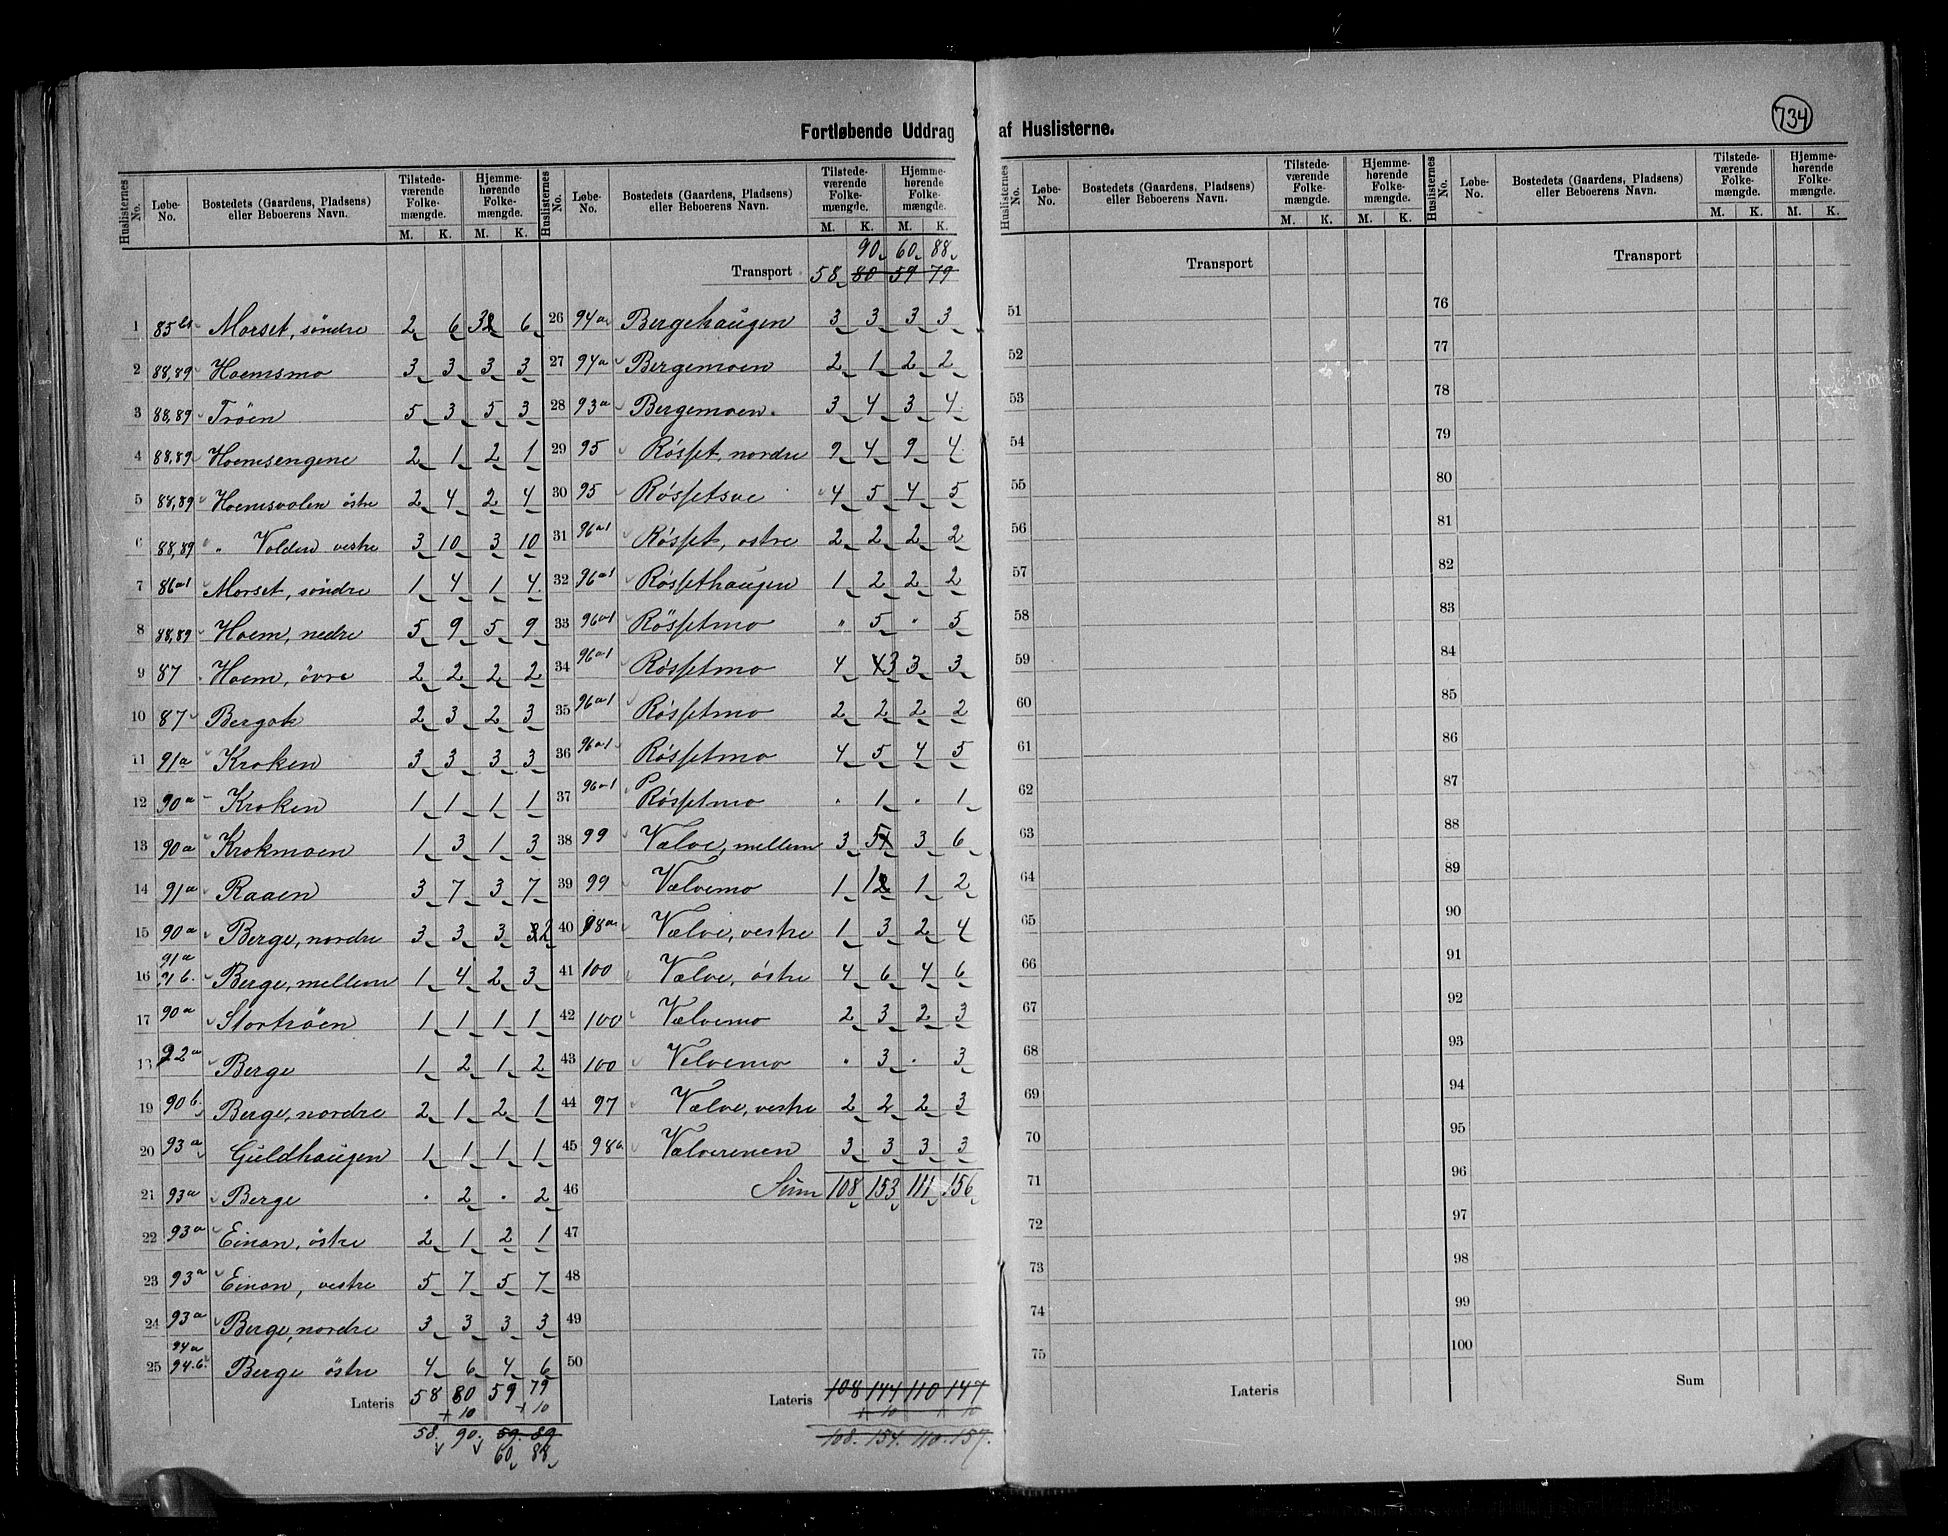 734
Fortløbende Uddrag af Huslisterne.
Huslisternes No. Løbe-No. Bostedets (Gaardens, Pladsens) eller Beboerens Navn. Tilstede-værende Folke-mængde. M. K. Hjemme-hørende Folke-mængde. M. K.
1 85 Morset, søndre 2 6 3 6
2 88,89 Hoemsmo 3 3 3 3
3 88,89 Trøen 5 3 5 3
4 88,89 Hoemsengene 2 1 2 1
5 88,89 Hoemsvolen østre 2 4 2 4
6 88,89 " Volden vestre 3 10 3 10
7 86a1 Morset, søndre 1 4 1 4
8 88,89 Hoem, nedre 5 9 5 9
9 87 Hoem, øvre 2 2 2 2
10 87 Bergok 2 3 2 3
11 91a Kroken 3 3 3 3
12 90a Kroken 1 1 1 1
13 90a Krokmoen 1 3 1 3
14 91a Raaen 3 7 3 7
15 90a Berge, nordre 3 3 3 2
16 91a 91b. Berge, mellem 1 4 2 3
17 90a Stortrøen 1 1 1 1
18 92a Berge 1 2 1 2
19 90b. Berge, nordre 2 1 2 1
20 93a Guldhaugen 1 1 1 1
21 93a Berge . 2 . 2
22 93a Einan, østre 2 1 2 1
23 93a Einan, vestre 5 7 5 7
24 93a Berge, nordre 3 3 3 3
25 94a 94.b. Berge østre 4 6 4 6
Lateris 58 80 59 79
+10 +10
58. 90. 59. 89
60 88
Huslisternes No. Løbe-No. Bostedets (Gaardens, Pladsens) eller Beboerens Navn. Tilstede-værende Folke-mængde. M. K. Hjemme-hørende Folke-mængde. M. K.
90 60 88
Transport 58 80 59 79
26 94a Bergehaugen 3 3 3 3
27 94a Bergemoen 2 1 2 2
28 93a Bergemoen. 3 4 3 4
29 95 Røsset, nordre 9 4 9 4
30 95 Røssetsve 4 5 4 5
31 96a1 Røsset, østre 2 2 2 2
32 96a1 Røssethaugen 1 2 2 2
33 96a1 Røssetmo " 5 " 5
34 96a1 Røssetmo 4 3 3 3
35 96a1 Røssetmo 2 2 2 2
36 96a1 Røssetmo 4 5 4 5
37 96a1 Røssetmo . 1 . 1
38 99 Vælve, mellem 3 5 3 6
39 99 Vælvemo 1 1 1 2
40 98a Vælve, vestre 1 3 2 4
41 100 Vælve, østre 4 6 4 6
42 100 Vælvemo 2 3 2 3
43 100 Velvemo . 3 . 3
44 97 Vælve, vestre 2 2 2 3
45 98a Vælverenen 3 3 3 3
46 Sum 108 153 111 156
47
48
49
50
Lateris 108 144 110 147
+10 +10
108. 154. 110. 157.
Huslisternes No. Løbe-No. Bostedets (Gaardens, Pladsens) eller Beboerens Navn. Tilstede-værende Folke-mængde. M. K. Hjemme-hørende Folke-mængde. M. K.
Transport
51
52
53
54
55
56
57
58
59
60
61
62
63
64
65
66
67
68
69
70
71
72
73
74
75
Lateris
Huslisternes No. Løbe-No. Bostedets (Gaardens, Pladsens) eller Beboerens Navn. Tilstede-værende Folke-mængde. M. K. Hjemme-hørende Folke-mængde. M. K.
Transport
76
77
78
79
80
81
82
83
84
85
86
87
88
89
90
91
92
93
94
95
96
97
98
99
100
Sum